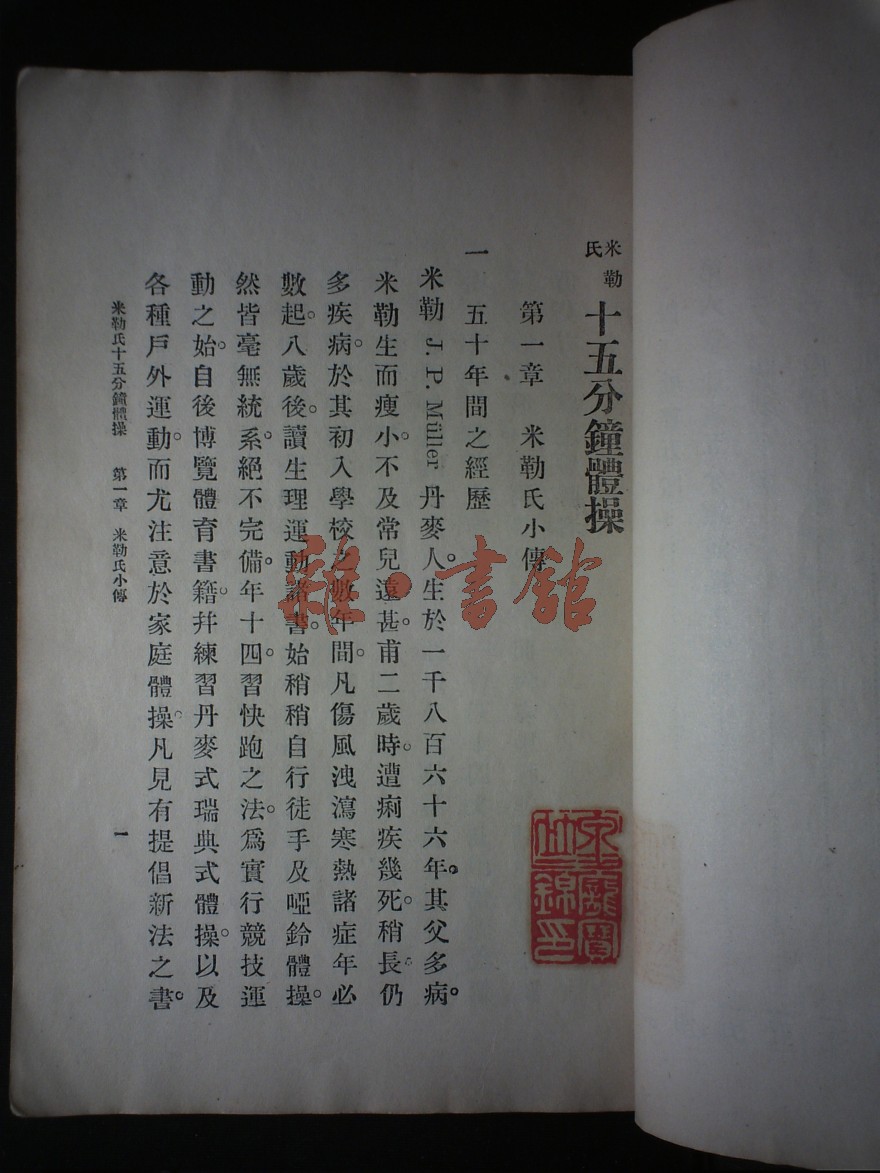 米勒氏 十五分鐘體操
第一章 米勒氏小傳
一 五十年間之經歷
米勒 J. P. Müller 丹麥人。生於一千八百六十六年。其父多病。
米勒生而瘦小。不及常兒遠甚。甫二歲時。遭痢疾幾死。稍長。仍
多疾病。於其初入學校之數年間。凡傷風洩瀉寒熱諸症年必
數起。八歲後。讀生理運動諸書。始稍稍自行徒手及啞鈴體操。
然皆毫無統系。絕不完備。年十四。習快跑之法。爲實行競技運
動之始。自後博覽體育書籍。幷練習丹麥式瑞典式體操。以及
各種戶外運動。而尤注意於家庭體操。凡見有提倡新法之書。
米勒氏十五分鐘體操 第一章 米勒氏小傳 一
雜·書館